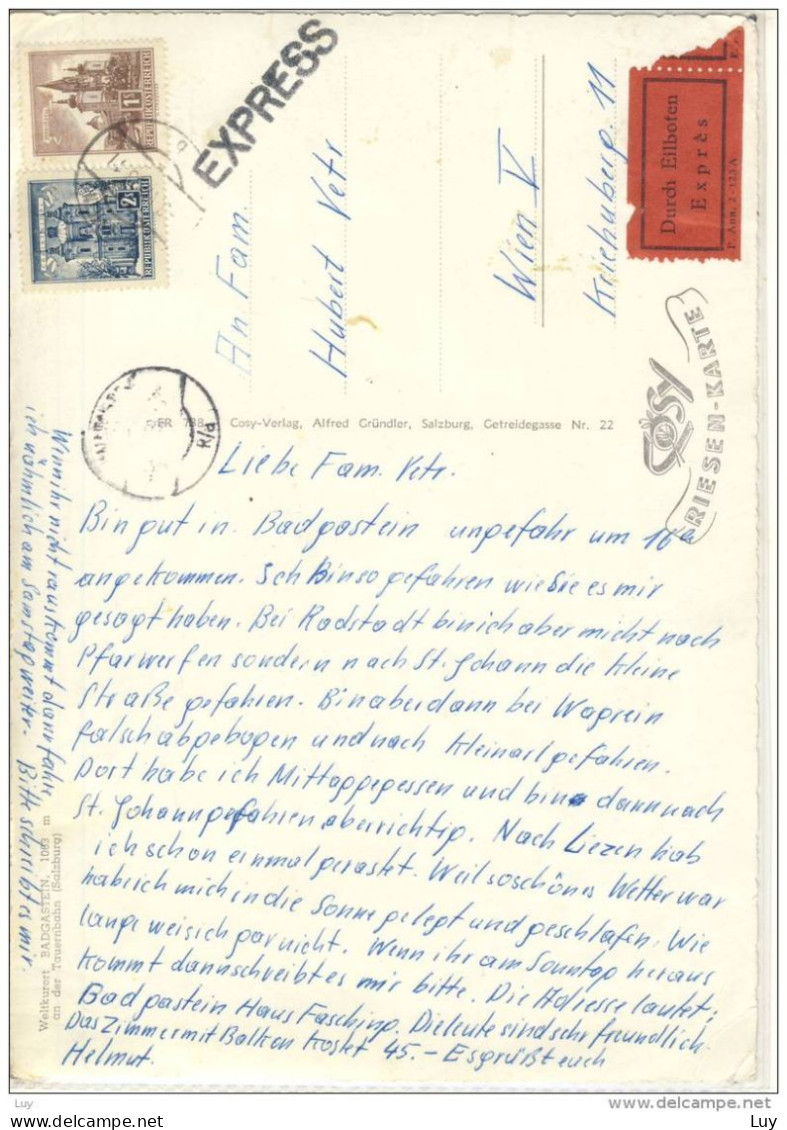 1S
REPUBLIK ÖSTERREICH
2S
REPUBLIK ÖSTERREICH
EXPRESS
Durch Eilboten
Exprès
P. Ann. 2-123 A
An Fam.
Hubert Vetr
Wien V
COSY
RIESEN-KARTE
738 Cosy-Verlag, Alfred Gründler, Salzburg, Getreidegasse Nr. 22
Liebe Fam. Vetr.
Bin gut in Badgastein ungefähr um 16h
angekommen. Ich Bin so gefahren wie Sie es mir
gesagt haben. Bei Radstadt bin ich aber nicht nach
Pfarwerfen sondern nach St. Johann die kleine
Straße gefahren. Bin aber dann bei Wagrein
falsch abgebogen und nach Kleinarl gefahren.
Dort habe ich Mittaggegessen und bin dann nach
St. Johann gefahren aber richtig. Nach Liezen hab
ich schon einmal gerastet. Weil so schönes Wetter war
hab ich mich in die Sonne gelegt und geschlafen. Wie
lange weis ich gar nicht. Wenn ihr am Sonntag heraus
kommt dann schreibt es mir bitte. Die Adresse lautet:
Badgastein Haus Fasching. Die leute sind sehr freundlich.
Das Zimmer mit Balkon kostet 45.- Es grüßt euch
Helmut.
Wenn ihr nicht rauskommt dann fahr
ich nähmlich am Samstag weiter. Bitte schreibt es mir.
Weltkurort BADGASTEIN, 1083 m
an der Tauernbahn (Salzburg)
Luy
delcampe.net
Luy